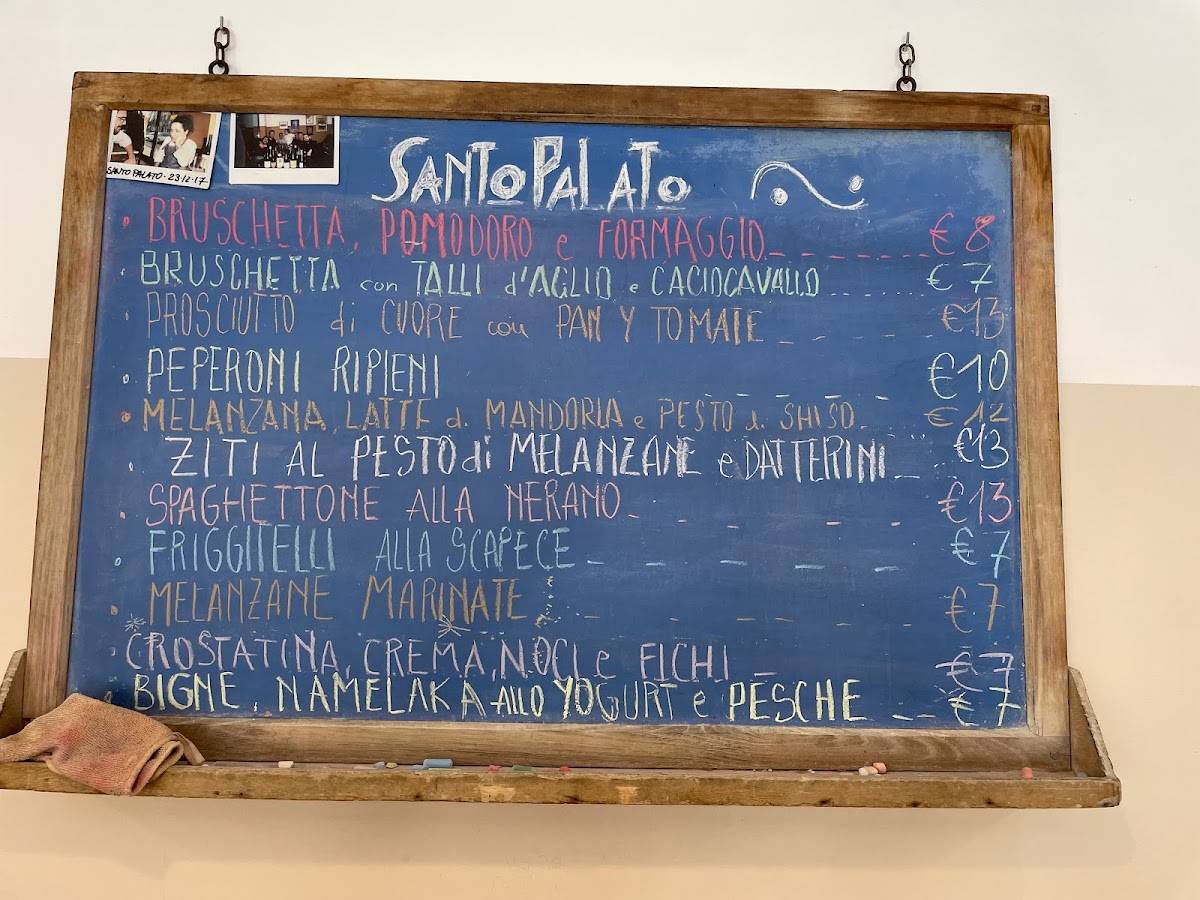 SANTO PALATO - 23.12.17
SANTO PALATO
BRUSCHETTA, POMODORO e FORMAGGIO € 8
BRUSCHETTA con TALLI d'AGLIO e CACIOCAVALLO € 7
PROSCIUTTO di CUORE con PAN Y TOMATE €13
PEPERONI RIPIENI €10
MELANZANA, LATTE di MANDORLA e PESTO di SHISO €12
ZITI AL PESTO di MELANZANE e DATTERINI €13
SPAGHETTONE ALLA NERANO €13
FRIGGITELLI ALLA SCAPECE €7
MELANZANE MARINATE €7
CROSTATINA, CREMA, NOCI e FICHI €7
BIGNE, NAMELAKA ALLO YOGURT e PESCHE €7